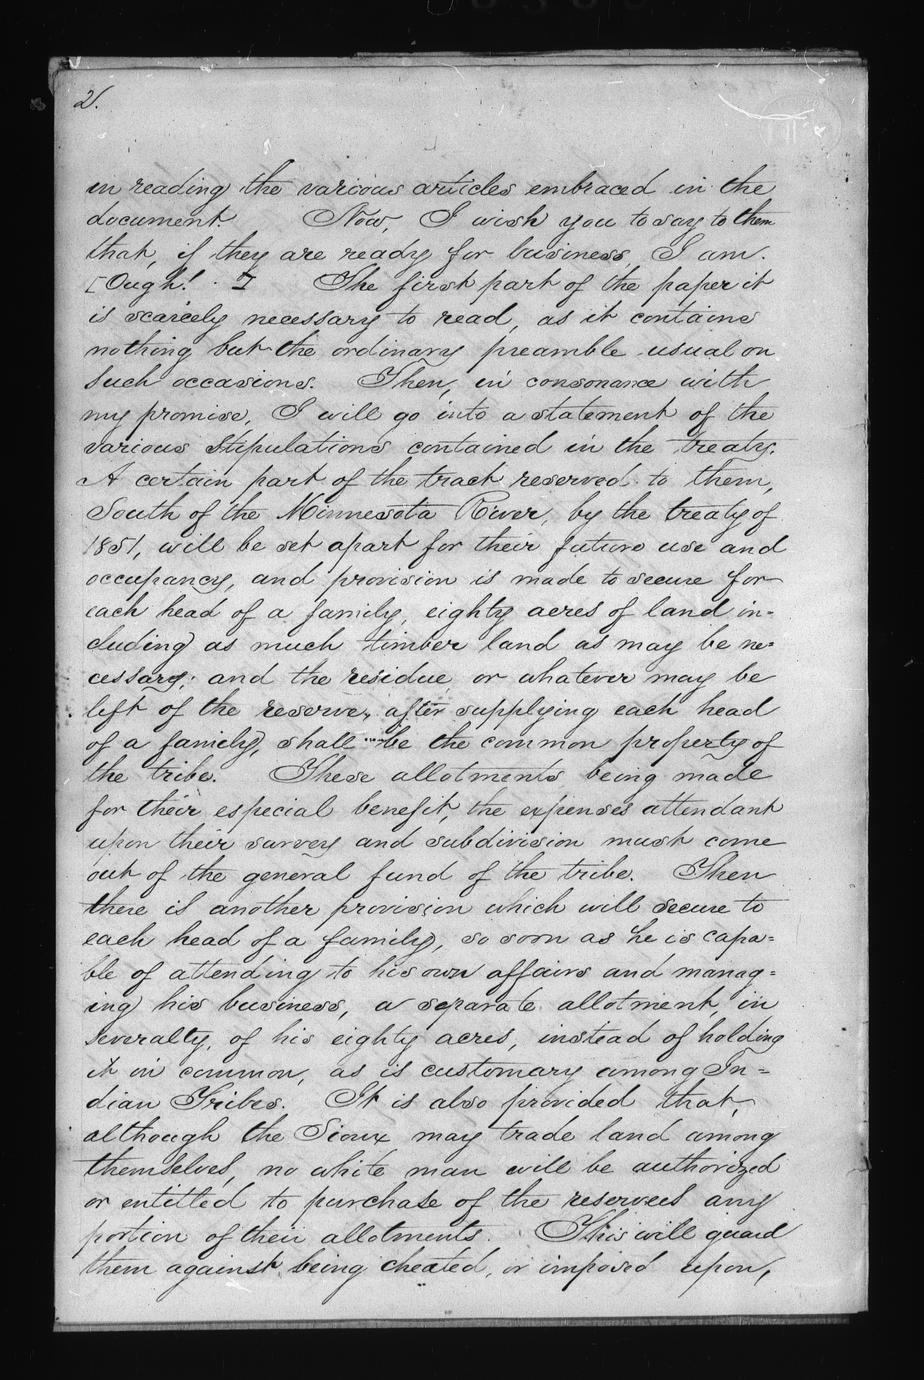 2.
in reading the various articles embraced in the
document. Now, I wish you to say to them
that, if they are ready for business, I am.
[Ough! . ] The first part of the paper it
is scarcely necessary to read, as it contains
nothing but the ordinary preamble usual on
such occasions. Then, in consonance with
my promise, I will go into a statement of the
various stipulations contained in the treaty.
A certain part of the tract reserved to them,
South of the Minnesota River, by the treaty of
1851, will be set apart for their future use and
occupancy, and provision is made to secure for
each head of a family, eighty acres of land in=
cluding as much timber land as may be ne=
cessary; and the residue, or whatever may be
left of the reserve, after supplying each head
of a family, shall be the common property of
the tribe. These allotments being made
for their especial benefit, the expenses attendant
upon their survey and subdivision must come
out of the general fund of the tribe. Then
there is another provision which will secure to
each head of a family, so soon as he is capa=
ble of attending to his own affairs and manag=
ing his business, a separate allotment, in
severalty, of his eighty acres, instead of holding
it in common, as is customary among In=
dian Tribes. It is also provided that,
although the Sioux may trade land among
themselves, no white man will be authorized
or entitled to purchase of the reservees any
portion of their allotments. This will guard
them against being cheated, or imposed upon,